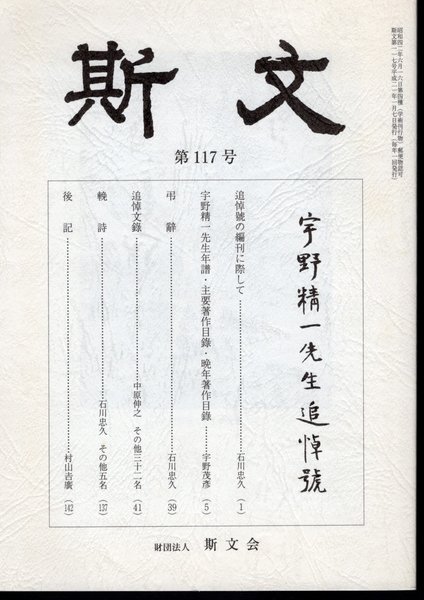 斯文
第117号
宇野精一先生追悼號
追悼號の編刊に際して……石川忠久（1）
宇野精一先生年譜・主要著作目錄・晩年著作目錄……宇野茂彦（5）
弔辭……石川忠久（39）
追悼文錄……中原伸之 その他三十二名（41）
輓詩……石川忠久 その他五名（137）
後記……村山吉廣（142）
財団法人 斯文会
昭和四二年六月一六日第四種（学術刊行物）郵便物認可
斯文第一一七号平成二一年一月七日発行（毎年一回発行）